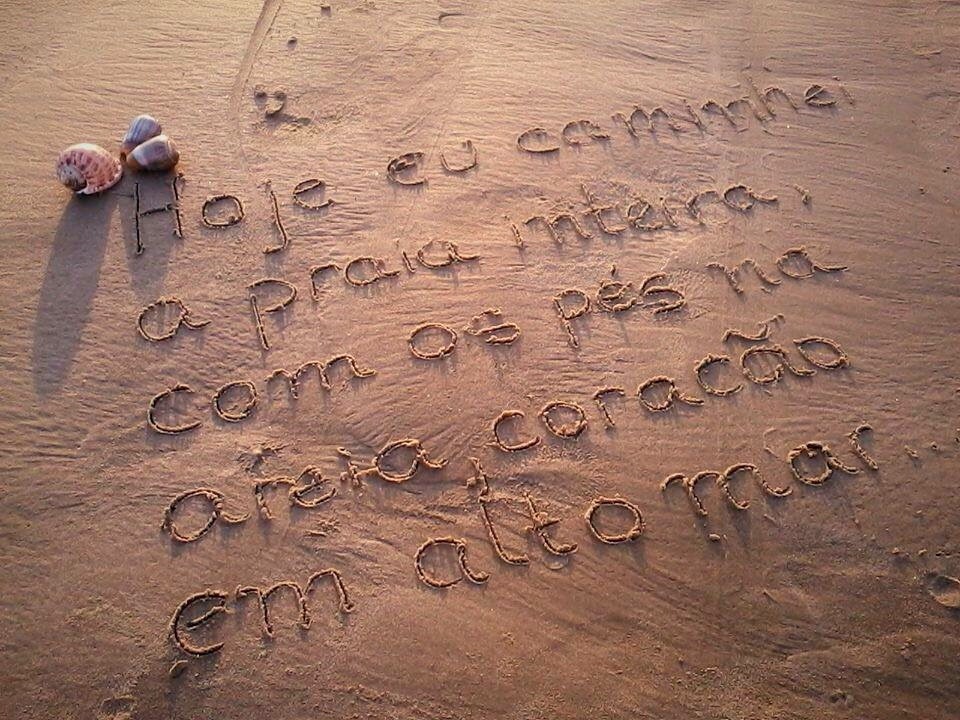 Hoje eu caminhei
a praia inteira,
com os pés na
areia coração
em alto mar...